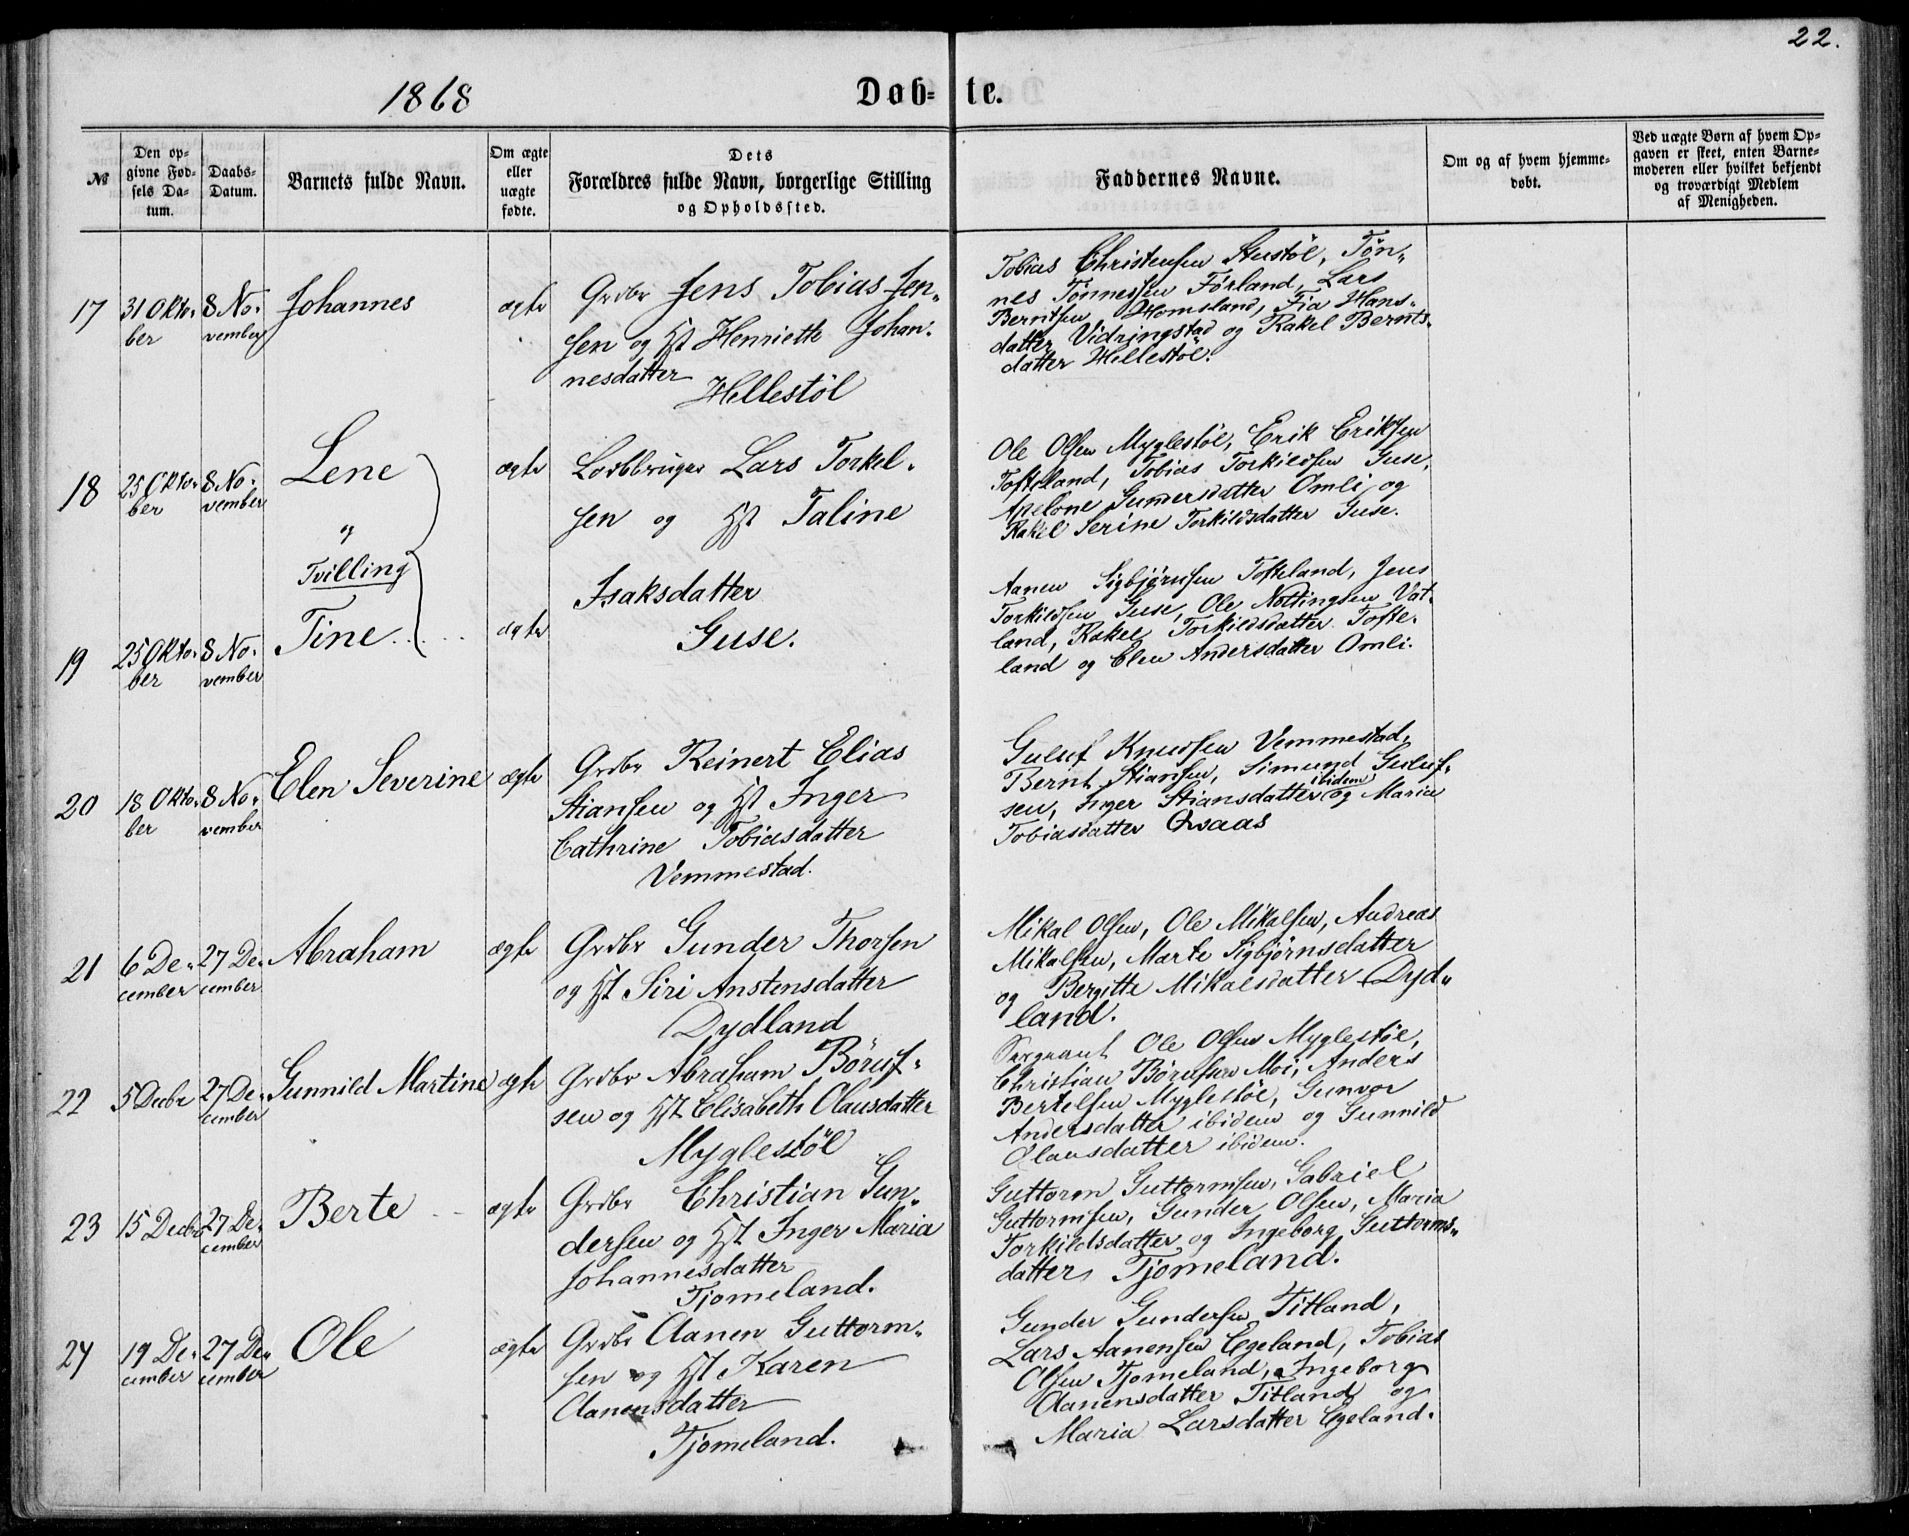 22.
1868
Døbte.
№
Den opgivne Fødsels Datum.
Daabs-Datum.
Barnets fulde Navn.
Om ægte eller uægte fødte.
Dets Forældres fulde Navn, borgerlige Stilling og Opholdssted.
Faddernes Navne.
Om og af hvem hjemmedøbt.
Ved uægte Børn af hvem Opgaven er skeet, enten Barnemoderen eller hvilket bekjendt og troværdigt Medlem af Menigheden.
17
31 Okto-
ber
8 No-
vember
Johannes
ægte
Grdbr Jens Tobias Jen-
sen og Hst Henriette Johan-
nesdatter
Hellestøl
Tobias Christensen Stustøl, Tøn-
nes Tønnessen Førland, Lars
Berntsen Homsland, Fia Hans-
datter Vidringstad og Rakel Bernts-
datter Hellestøl.
18
25 Okto-
ber
8 No-
vember
Lene
ægte
Lodbruger Lars Torkel-
sen og Hst Taline
Ole Olsen Myglestøl, Erik Eriksen
Tofteland, Tobias Torkildsen Guse,
Apelone Gundersdatter Omli og
Rakel Serine Torkildsdatter Guse.
og
Tvilling
19
25 Okto-
ber
8 No-
vember
Tine
ægte
Isaksdatter
Guse.
Aanen Sigbjørnsen Tofteland, Jens
Torkildsen Guse, Ole Nottingsen Vat-
land, Rakel Torkildsdatter Tofte-
land og Elen Andersdatter Omli.
20
18 Okto-
ber
8 No-
vember
Elen Severine
ægte
Grdbr Reinert Elias
Stiansen og Hst Inger
Cathrine Tobiasdatter
Vemmestad.
Guluf Knudsen Vemmestad,
Bernt Stiansen, Simund Guluf-
sen, Inger Stiansdatter ibidem og Maria
Tobiasdatter Qvaas
21
6 De-
cember
27 De-
cember
Abraham
ægte
Grdbr Gunder Thorsen
og Hst Siri Anstensdatter
Dydland
Mikal Olsen, Ole Mikalsen, Andreas
Mikalsen, Marte Sigbjørnsdatter
og Bergitte Mikalsdatter Dyd-
land.
22
5 Decbr
27 De-
cember
Gunnild Martine
ægte
Grdbr Abraham Børuf-
sen og Hst Elisabeth Olausdatter
Myglestøl
Sergeant Ole Olsen Myglestøl,
Christian Børufsen Moi, Anders
Bertelsen Myglestøl, Gunvor
Andersdatter ibidem og Gunnild
Olausdatter ibidem.
23
15 Decbr
27 De-
cember
Berte
ægte
Grdbr Christian Gun-
dersen og Hst Inger Maria
Johannesdatter
Tjomeland.
Guttorm Guttormsen, Gabriel
Guttormsen, Gunder Olsen, Maria
Torkildsdatter og Ingeborg Guttorms-
datter Tjomeland.
24
19 De-
cember
27 De-
cember
Ole
ægte
Grdbr Aanen Guttorm-
sen og Hst Karen
Aanensdatter
Tjomeland.
Gunder Gundersen Titland,
Lars Aanensen Egeland, Tobias
Olsen Tjomeland, Ingeborg
Aanensdatter Titland og
Maria Larsdatter Egeland.